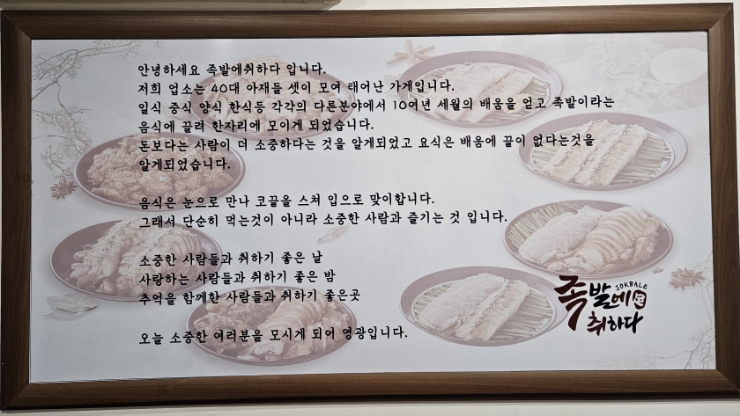 안녕하세요 족발에취하다 입니다.
저희 업소는 40대 아재들 셋이 모여 태어난 가게입니다.
일식 중식 양식 한식등 각각의 다른분야에서 10여년 세월의 배움을 얻고 족발이라는
음식에 끌려 한자리에 모이게 되었습니다.
돈보다는 사람이 더 소중하다는 것을 알게되었고 요식은 배움에 끝이 없다는것을
알게되었습니다.
음식은 눈으로 만나 코끝을 스쳐 입으로 맞이합니다.
그래서 단순히 먹는것이 아니라 소중한 사람과 즐기는 것 입니다.
소중한 사람들과 취하기 좋은 날
사랑하는 사람들과 취하기 좋은 밤
추억을 함께한 사람들과 취하기 좋은곳
오늘 소중한 여러분을 모시게 되어 영광입니다.
JOKBALE
족발에
취하다